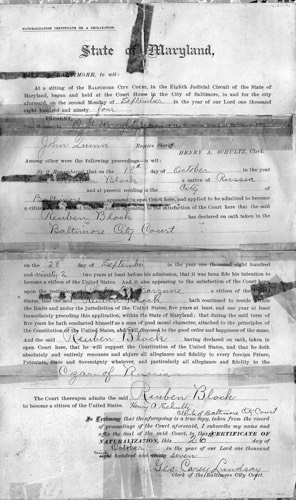 NATURALIZATION CERTIFICATE ON A DECLARATION.
State of Maryland,
BALTIMORE, to wit:
At a sitting of the BALTIMORE CITY COURT, in the Eighth Judicial Circuit of the State of
Maryland, began and held at the Court House in the City of Baltimore, in and for the city
aforesaid, on the second Monday of September in the year of our Lord one thousand
eight hundred and ninety four
PRESENT
The Hon
John Quinn Esquire Sheriff.
HENRY A. SCHULTZ, Clerk.
Among other were the following proceedings to wit:
Be it Remembered, that on the 13th day of October in the year
Block a native of Russia
and at present residing in the City of
appeared in open Court here, and applied to be admitted to become
a citizen of the satisfaction of the Court here that the said
Reuben Block has declared on oath taken in the
Baltimore City Court
on the 28 day of September in the year one thousand eight hundred
and Ninety 2 two years at least before his admission, that it was bona fide his intention to
become a citizen of the United States. And it also appearing to the satisfaction of the Court
upon the testimony a citizen of the United
States, that the said Reuben Block hath continued to reside within
the limits and under the jurisdiction of the United States, five years at least, and one year at least
immediately preceding this application, within the State of Maryland; that during the said term of
five years he hath conducted himself as a man of good moral character, attached to the principles of
the Constitution of the United States, and well disposed to the good order and happiness of the same.
And the said Reuben Block having declared on oath, taken in
open Court here, that he will support the Constitution of the United States, and that he doth
absolutely and entirely renounce and abjure all allegiance and fidelity to every foreign Prince,
Potentate, State and Sovereignty whatever, and particularly all allegiance and fidelity to the
Czar of Russia
The Court thereupon admits the said Reuben Block
to become a citizen of the United States. Henry A Schultz
Clerk of Baltimore City Court
In Testimony that the aforegoing is a true copy, taken from the record
of proceedings of the Court aforesaid, I subscribe my name and
affix the Seal of the said Court, to this CERTIFICATE OF
NATURALIZATION, this 26 day of
October in the year of our Lord one thousand
hundred and ninety seven
Geo. Carey Lindsay
Clerk of the Baltimore City Court.